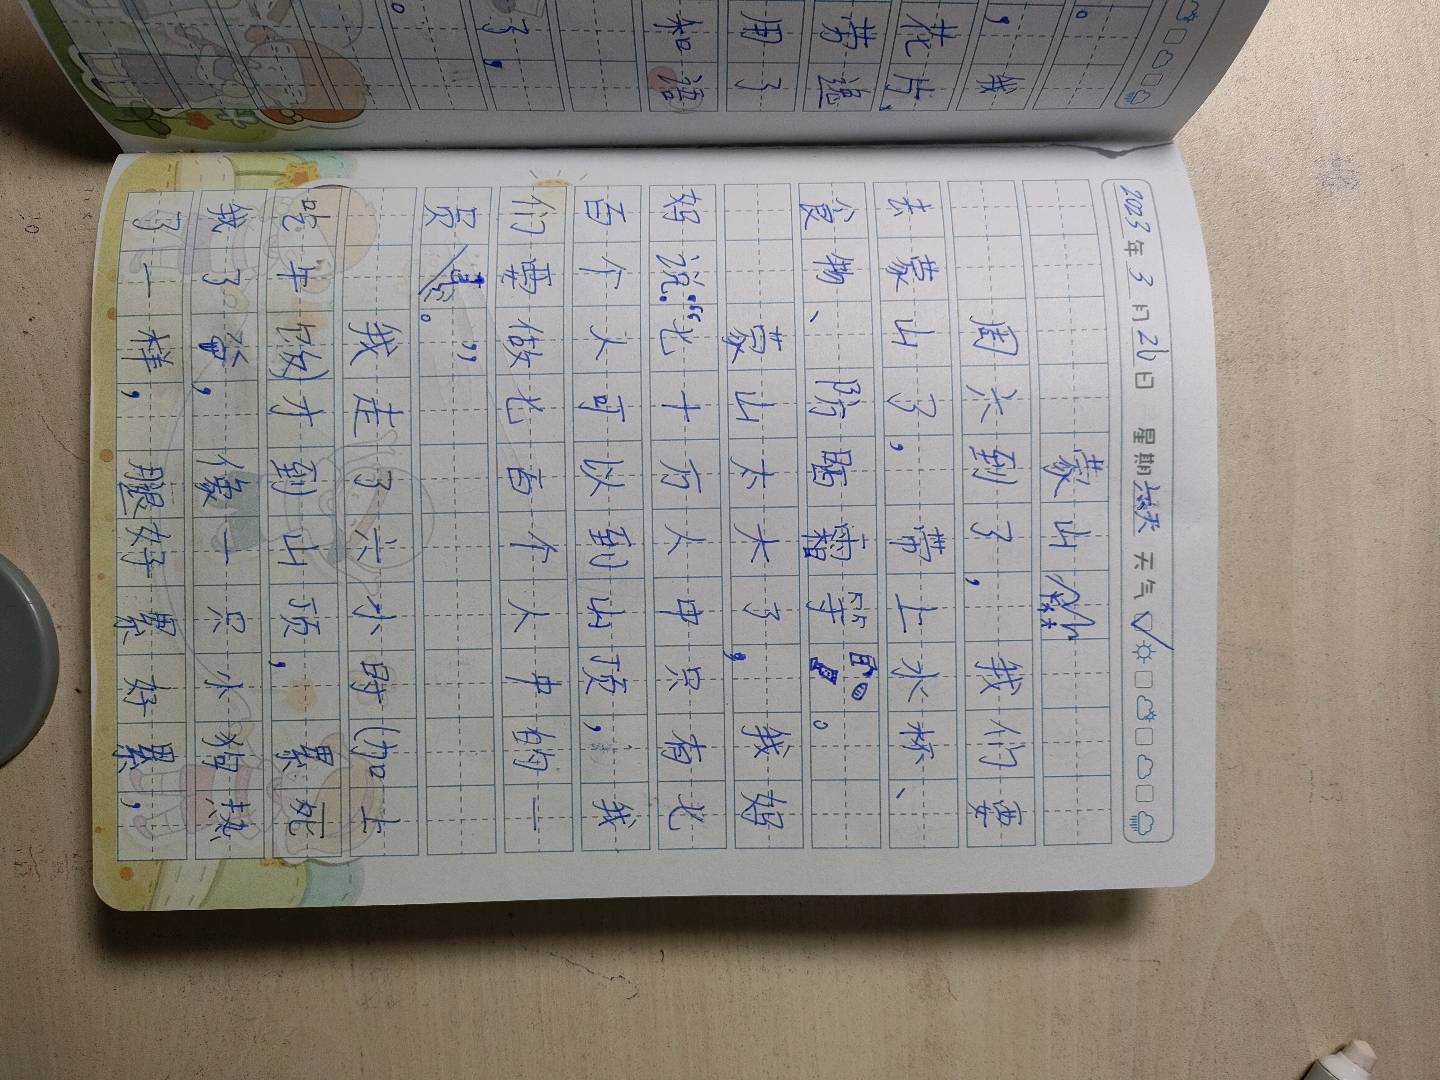 。
，我
花片，
劳追
用了
和语
了，
。
2023年3月2 日 星期天 天气
蒙山
周六到了，我们要
去蒙山了，带上水杯、
食物、防晒霜等。
蒙山太大了，我妈
妈说：“七十万人中只有七
百个人可以到山顶，我
们要做七百个人中的一
员。”
我走了六小时(加上
吃午饭)才到山顶，累死
我了，像一只水狗热
了一样，腿好累好累，